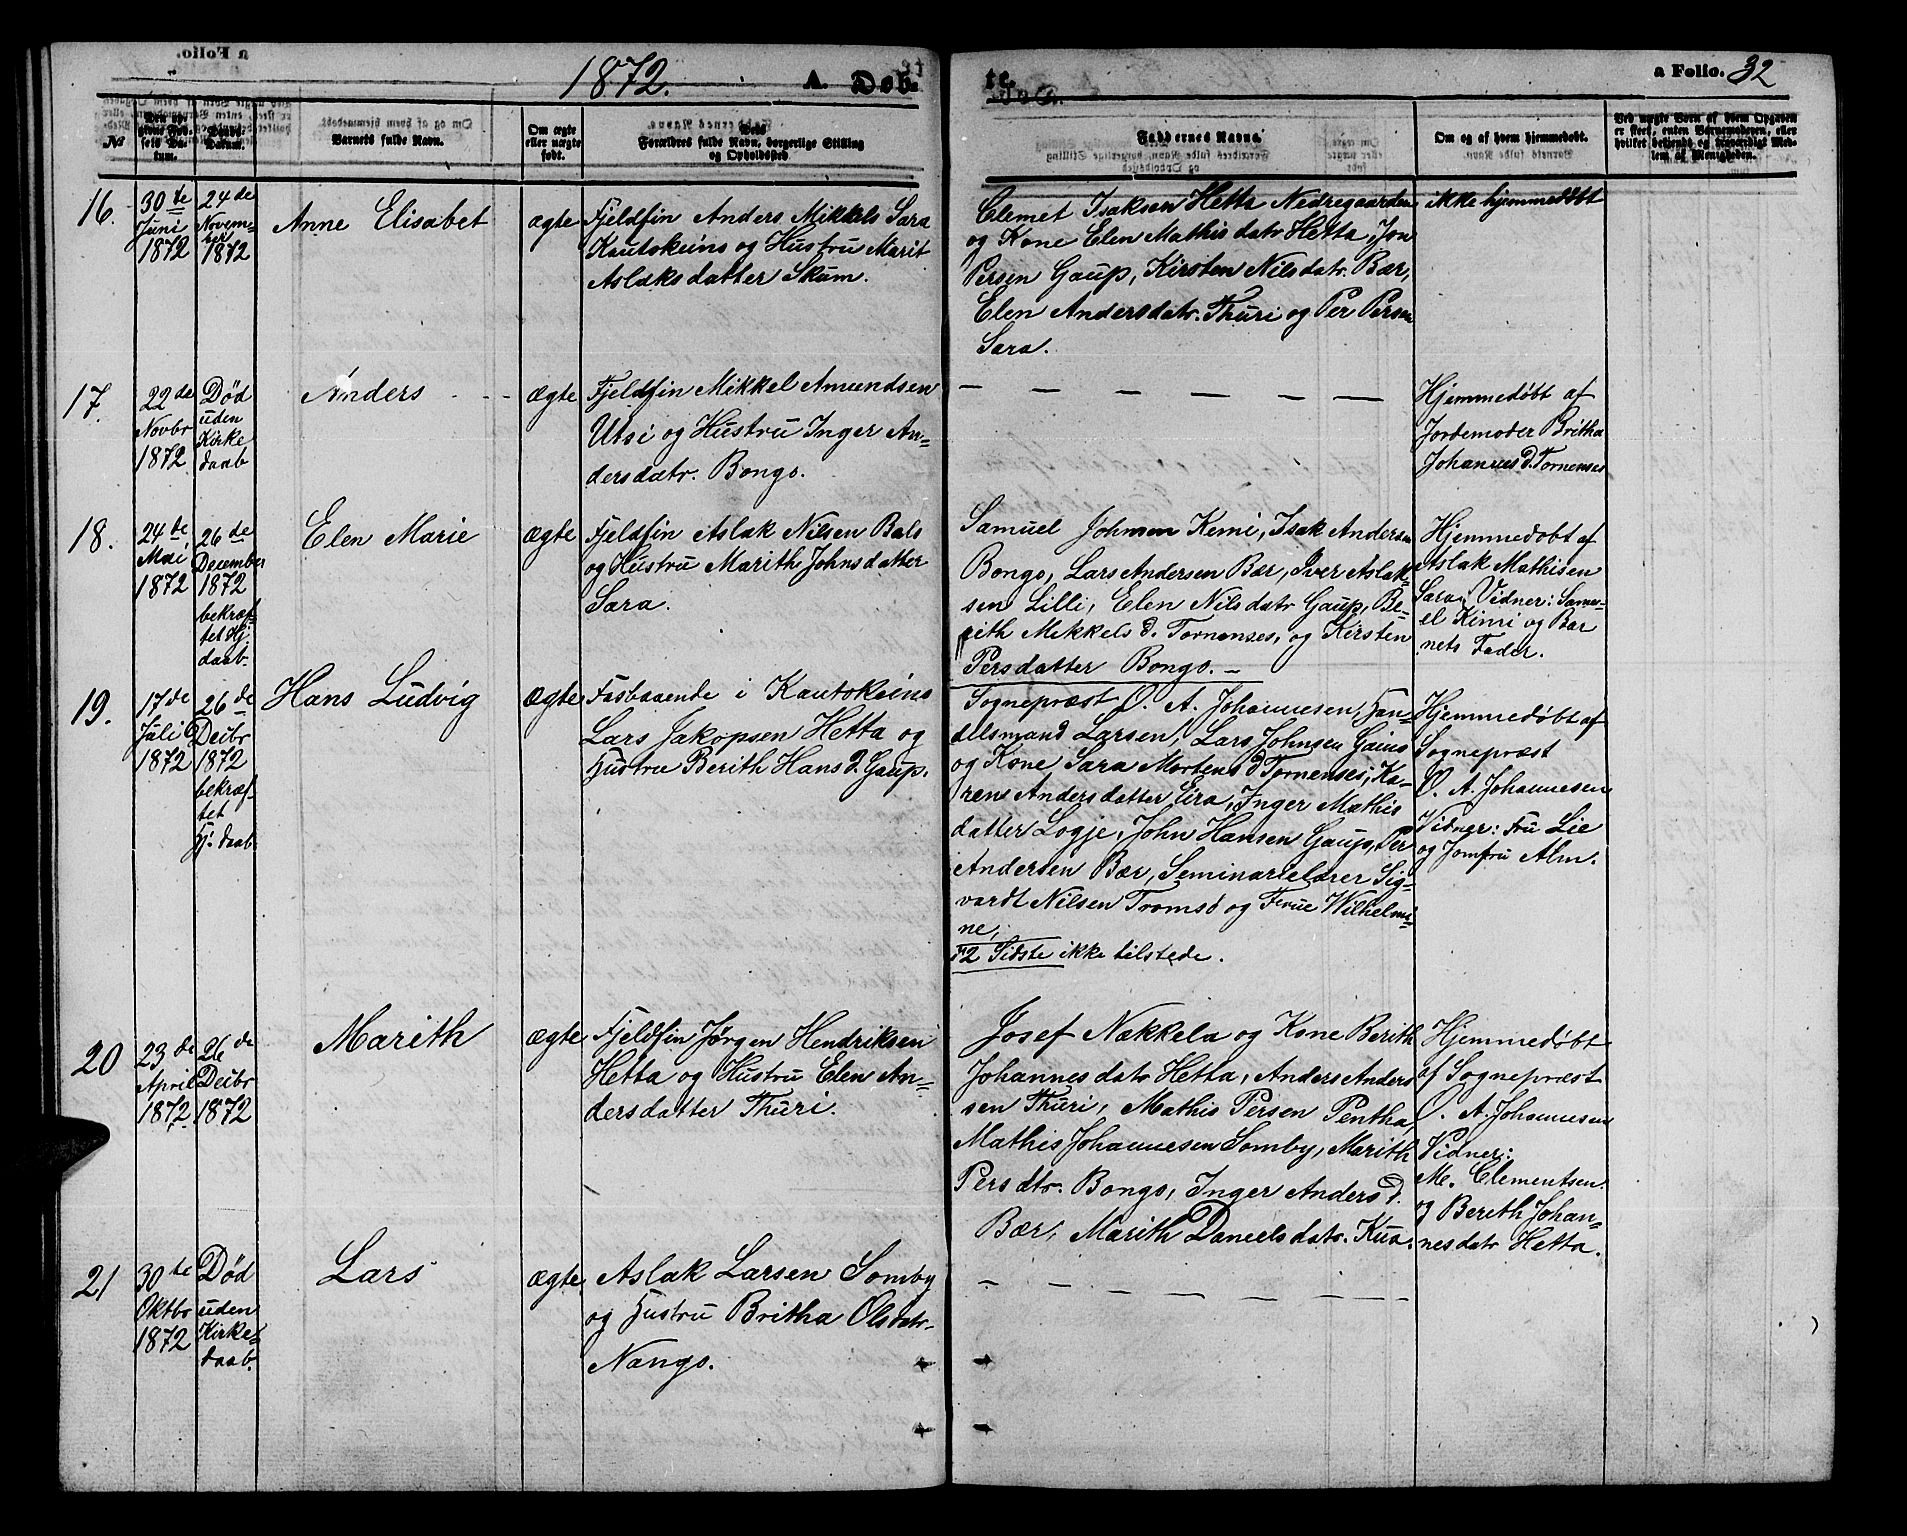 1872. A. Døb-
te. a Folio. 32
№
Barnets fulde Navn.
Om ægte
eller uægte
født.
Forældres fulde Navn, borgerlige Stilling
og Opholdssted
Faddernes Navne.
Om og af hvem hjemmedøbt.
Ved uægte Born af hvem Opgaven
er skeet, enten Barnemoderen, eller
hvilket bekjendt og troværdigt Med-
lem af Menigheden.
16.
30te
Juni
1872
24de
Novem-
ber
1872
Anne Elisabet
ægte
Fjeldfin Anders Mikkels Sara
Kautokeino og Hustru Marit
Aslaksdatter Skum.
Clemet Isaksen Hetta Nedregaarden
og Kone Elen Mathisdatr Hetta, Jon
Persen Gaup, Kirsten Nilsdatr. Bær,
Elen Andersdatr. Thuri og Per Persen
Sara.
ikke hjemmedøbt
17.
22de
Novbr
1872
Død
uden
Kirke
daab
Anders
ægte
Fjeldfin Mikkel Amundsen
Utsi og Hustru Inger An-
dersdatr. Bongo.
Hjemmedøbt af
Jordemoder Britha
Johannesd. Tornenses
18.
24de
Mai
1872
26de
December
1872
bekræf-
tet Hj.
daab.
Elen Marie
ægte
Fjeldfin Aslak Nilsen Bals
og Hustru Marith Johnsdatter
Sara.
Samuel Johnsen Kemi, Isak Andersen
Bongo, Lars Andersen Bær, Iver Aslak-
sen Lilli, Elen Nilsdatr Gaup, Be-
rith Mikkels d. Tornenses, og Kirsten
Persdatter Bongo. -
Hjemmedøbt af
Aslak Mathisen
Sara. Vidner: Samu-
el Kimi og Bar
nets Fader.
19.
17de
Juli
1872
26de
Decbr
1872
bekræf-
tet
Hj. daab.
Hans Ludvig
ægte
Fastboende i Kautokeino
Lars Jakopsen Hetta og
Hustru Berith Hans d. Gaup.
Sognepræst O. A. Johannesen, Han-
delsmand Larsen, Lars Johnsen Gaino
og Kone Sara Mortens d Tornenses, Ka-
ren Andersdatter Eira, Inger Mathis
datter Logje, John Hansen Gaup, Per
Andersen Bær, Seminarielærer Sig-
vardt Nilsen Tromsø og Frue Wilhelmi-
ne,
2 Sidste ikke tilstede.
Hjemmedøbt af
Sognepræst
O. A. Johannesen
Vidner: Fru Lie
og Jomfru Alm.
20
23de
April
1872
26de
Decbr
1872
Marith
ægte
Fjeldfin Jørgen Hendriksen
Hetta og Hustru Elen An-
dersdatter Thuri.
Josef Nækkela og Kone Berith
Johannesdatr Hetta, Anders Anders
sen Thuri, Mathis Persen Pentha,
Mathis Johannesen Somby, Marith
Persdtr. Bongo, Inger Anders d.
Bær, Marith Danielsdatr. Kua.
Hjemmedøbt
af Sognepræst
O. A. Johannesen
Vidner:
M. Clementsen
og Bereth Johan-
nesdatr Hetta.
21
30te
Oktbr
1872
Død
uden
Kirke-
daab.
Lars
ægte
Aslak Larsen Somby
og Hustru Britha Olsdatr-
Nango.